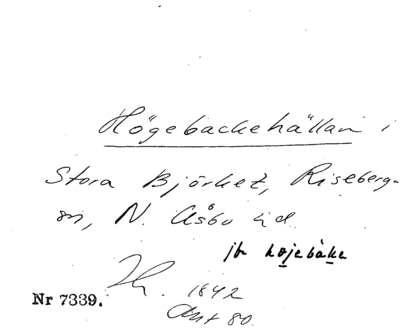 Högebackehällan i
Stora Björket, Riseberga
sn, N. Åsbo hd.
jfr højebàke
1842
Nr 7339.
Ant 80.